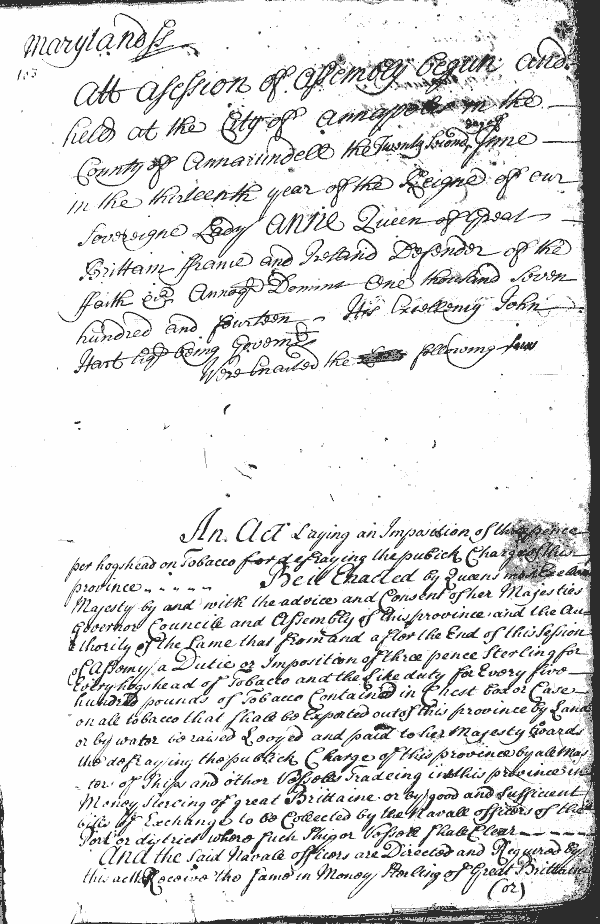 Maryland ss
103
Att a session of Assembly begun and
held at the City of Annapolis in the
County of Annarundell the Twenty Second day of June
in the thirteenth year of the Reigne of our
Sovereigne Lady Anne Queen of Great
Brittain ffrance and Ireland Defender of the
ffaith &c Annoq Domini One thousand Seven
hundred and fourteen His Excellency John
Hart Esqr being Governr
Were Enacted the following Laws
An Act Laying an Imposition of three pence
per hogshead on Tobacco for defraying the publick Charge of this
province Be it Enacted by Queens most Excellent
Majesty by and with the advice and Consent of her Majesties
Governor Councile and Assembly of this province and the Au
thority of the Same that from and after the End of this Session
of Assemy a Dutie or Imposition of three pence Sterling for
Every hogshead of Tobacco and the Like duty for Every five
hundred pounds of Tobacco Contained in Chest box or Case
on all tobacco that shall be Exported out of this province by Land
or by water be raised Levyed and paid to her Majesty towards
the defraying the publick Charge of this province by all Mas
ter of Ships and other Vessels Tradeing in this province in
Money Sterling of great Brittaine or by good and Sufficient
bills of Exchange to be Collected by the Navall officers of the
Port or district where such Ship or Vessell shall Clear
And the Said Navall officers are Directed and Required by
this act to Receive the same in Money Sterling of Great Brittaine
(or)